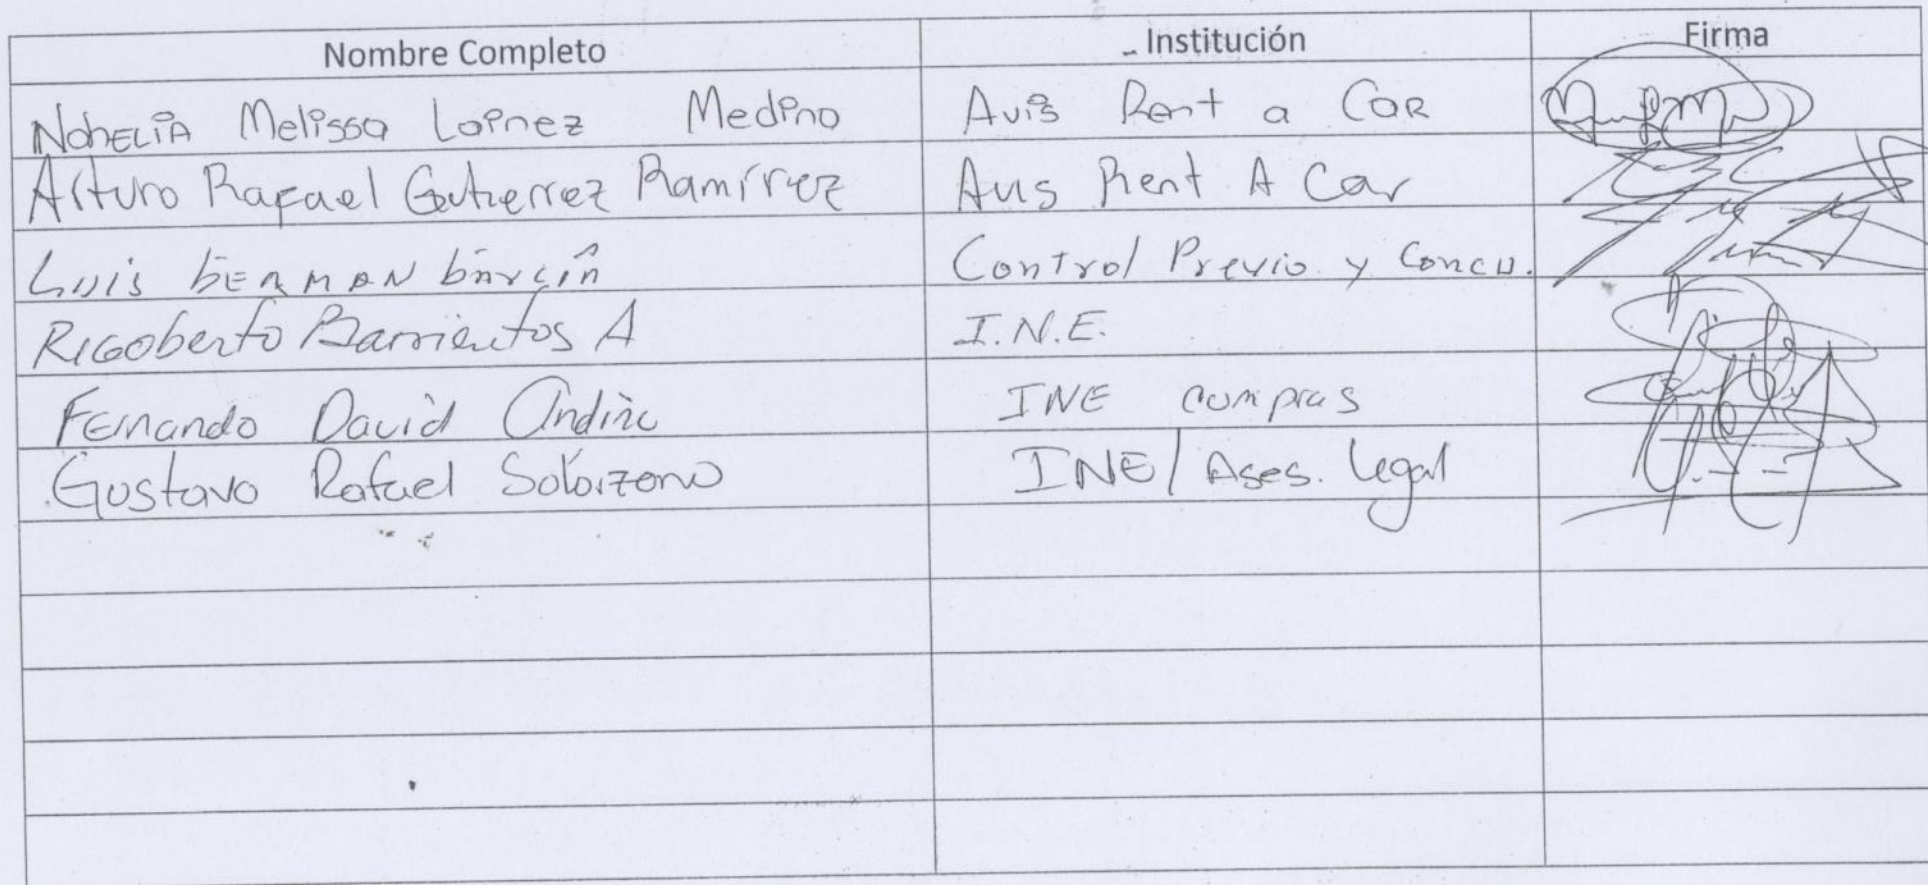 Nombre Completo Institución Firma
Nohelia Melissa Lainez Medina Avis Rent a Car
Arturo Rafael Gutierrez Ramírez Avis Rent A Car
Luis German Control Previo y Concu.
Rigoberto Barrientos A I.N.E.
Fernando David Andino INE compras
Gustavo Rafael Solorzano INE/ Ases. Legal